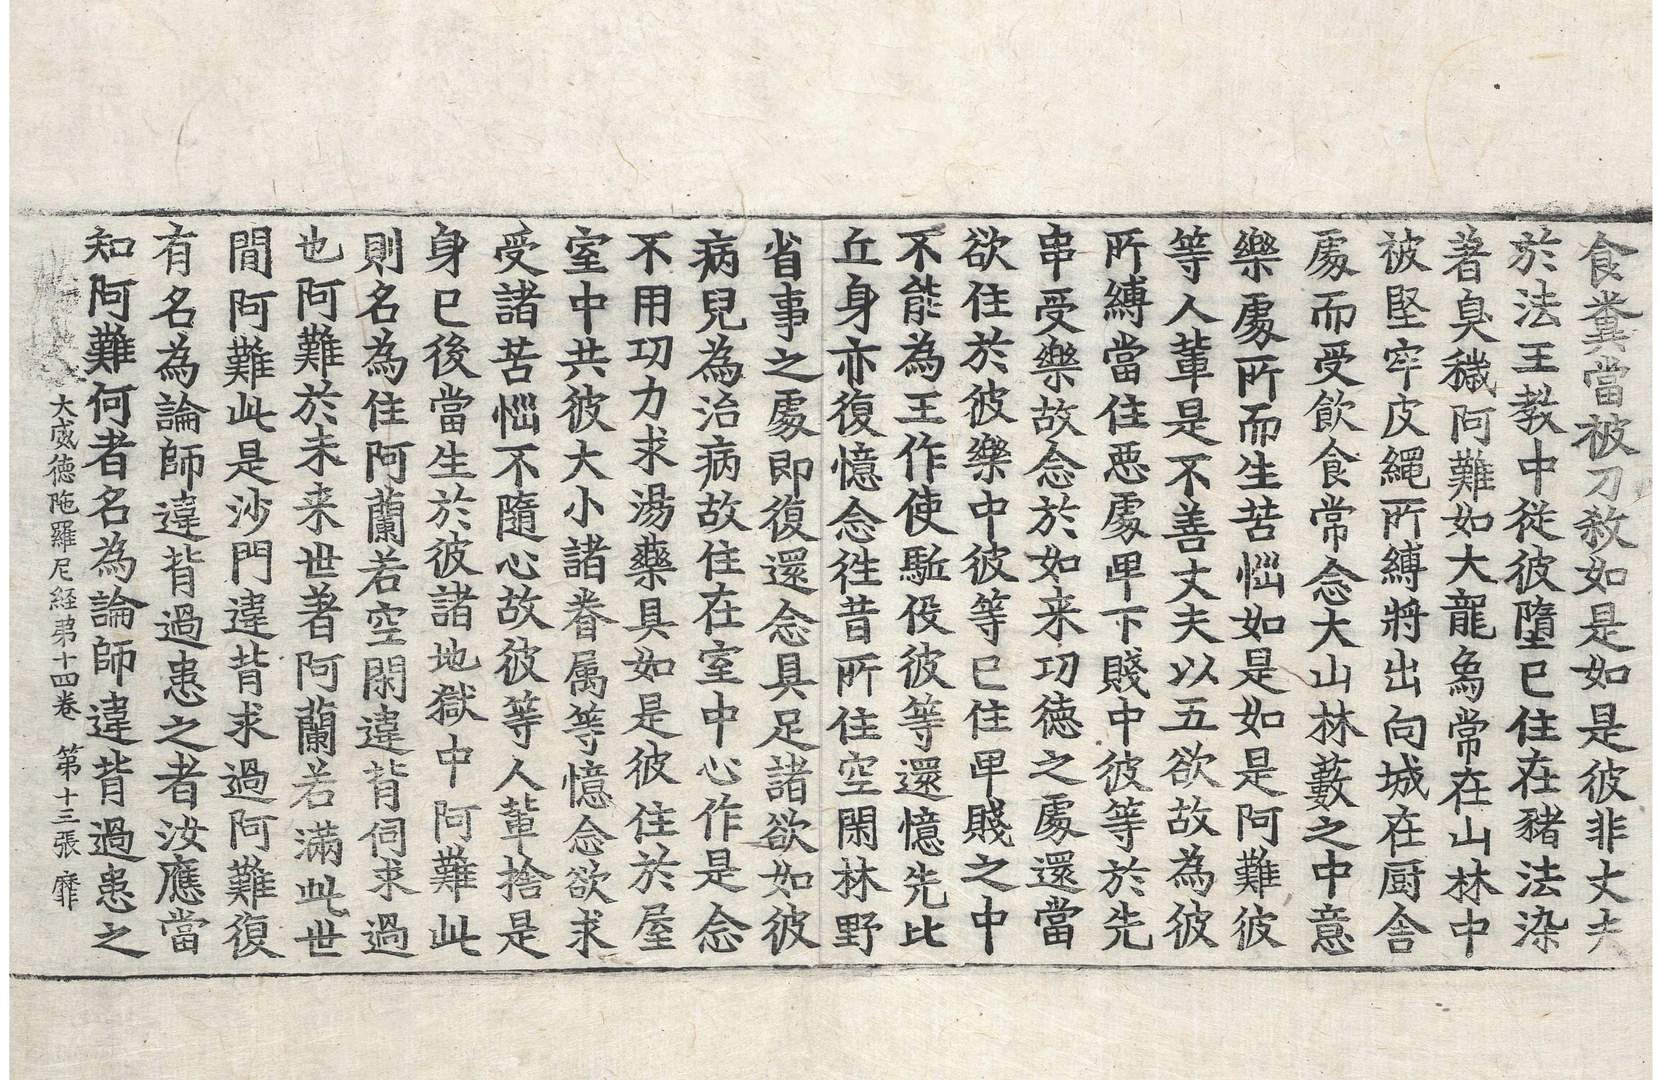 食糞當被刀殺如是如是彼非丈夫
於法王教中從彼墮已住在豬法染
著臭穢阿難如大龍烏常在山林中
被堅牢皮繩所縛將出向城在厨舍
處而受飲食常念大山林藪之中意
樂處所而生苦惱如是如是阿難彼
等人輩是不善丈夫以五欲故為彼
所縛當住惡處卑下賤中彼等於先
串受樂故念於如来功德之處還當
欲住於彼樂中彼等已住卑賤之中
不能為王作使駈役彼等還憶先比
丘身亦復憶念徃昔所住空閑林野
省事之處即復還念具足諸欲如彼
病兒為治病故住在室中心作是念
不用功力求湯藥具如是彼住於屋
室中共彼大小諸眷属等憶念欲求
受諸苦惱不隨心故彼等人輩捨是
身已後當生於彼諸地獄中阿難此
則名為住阿蘭若空閑違背伺求過
也阿難於未来世著阿蘭若滿此世
間阿難此是沙門違背求過阿難復
有名為論師違背過患之者汝應當
知阿難何者名為論師違背過患之
大威德陁羅尼経苐十四卷　第十三張　靡